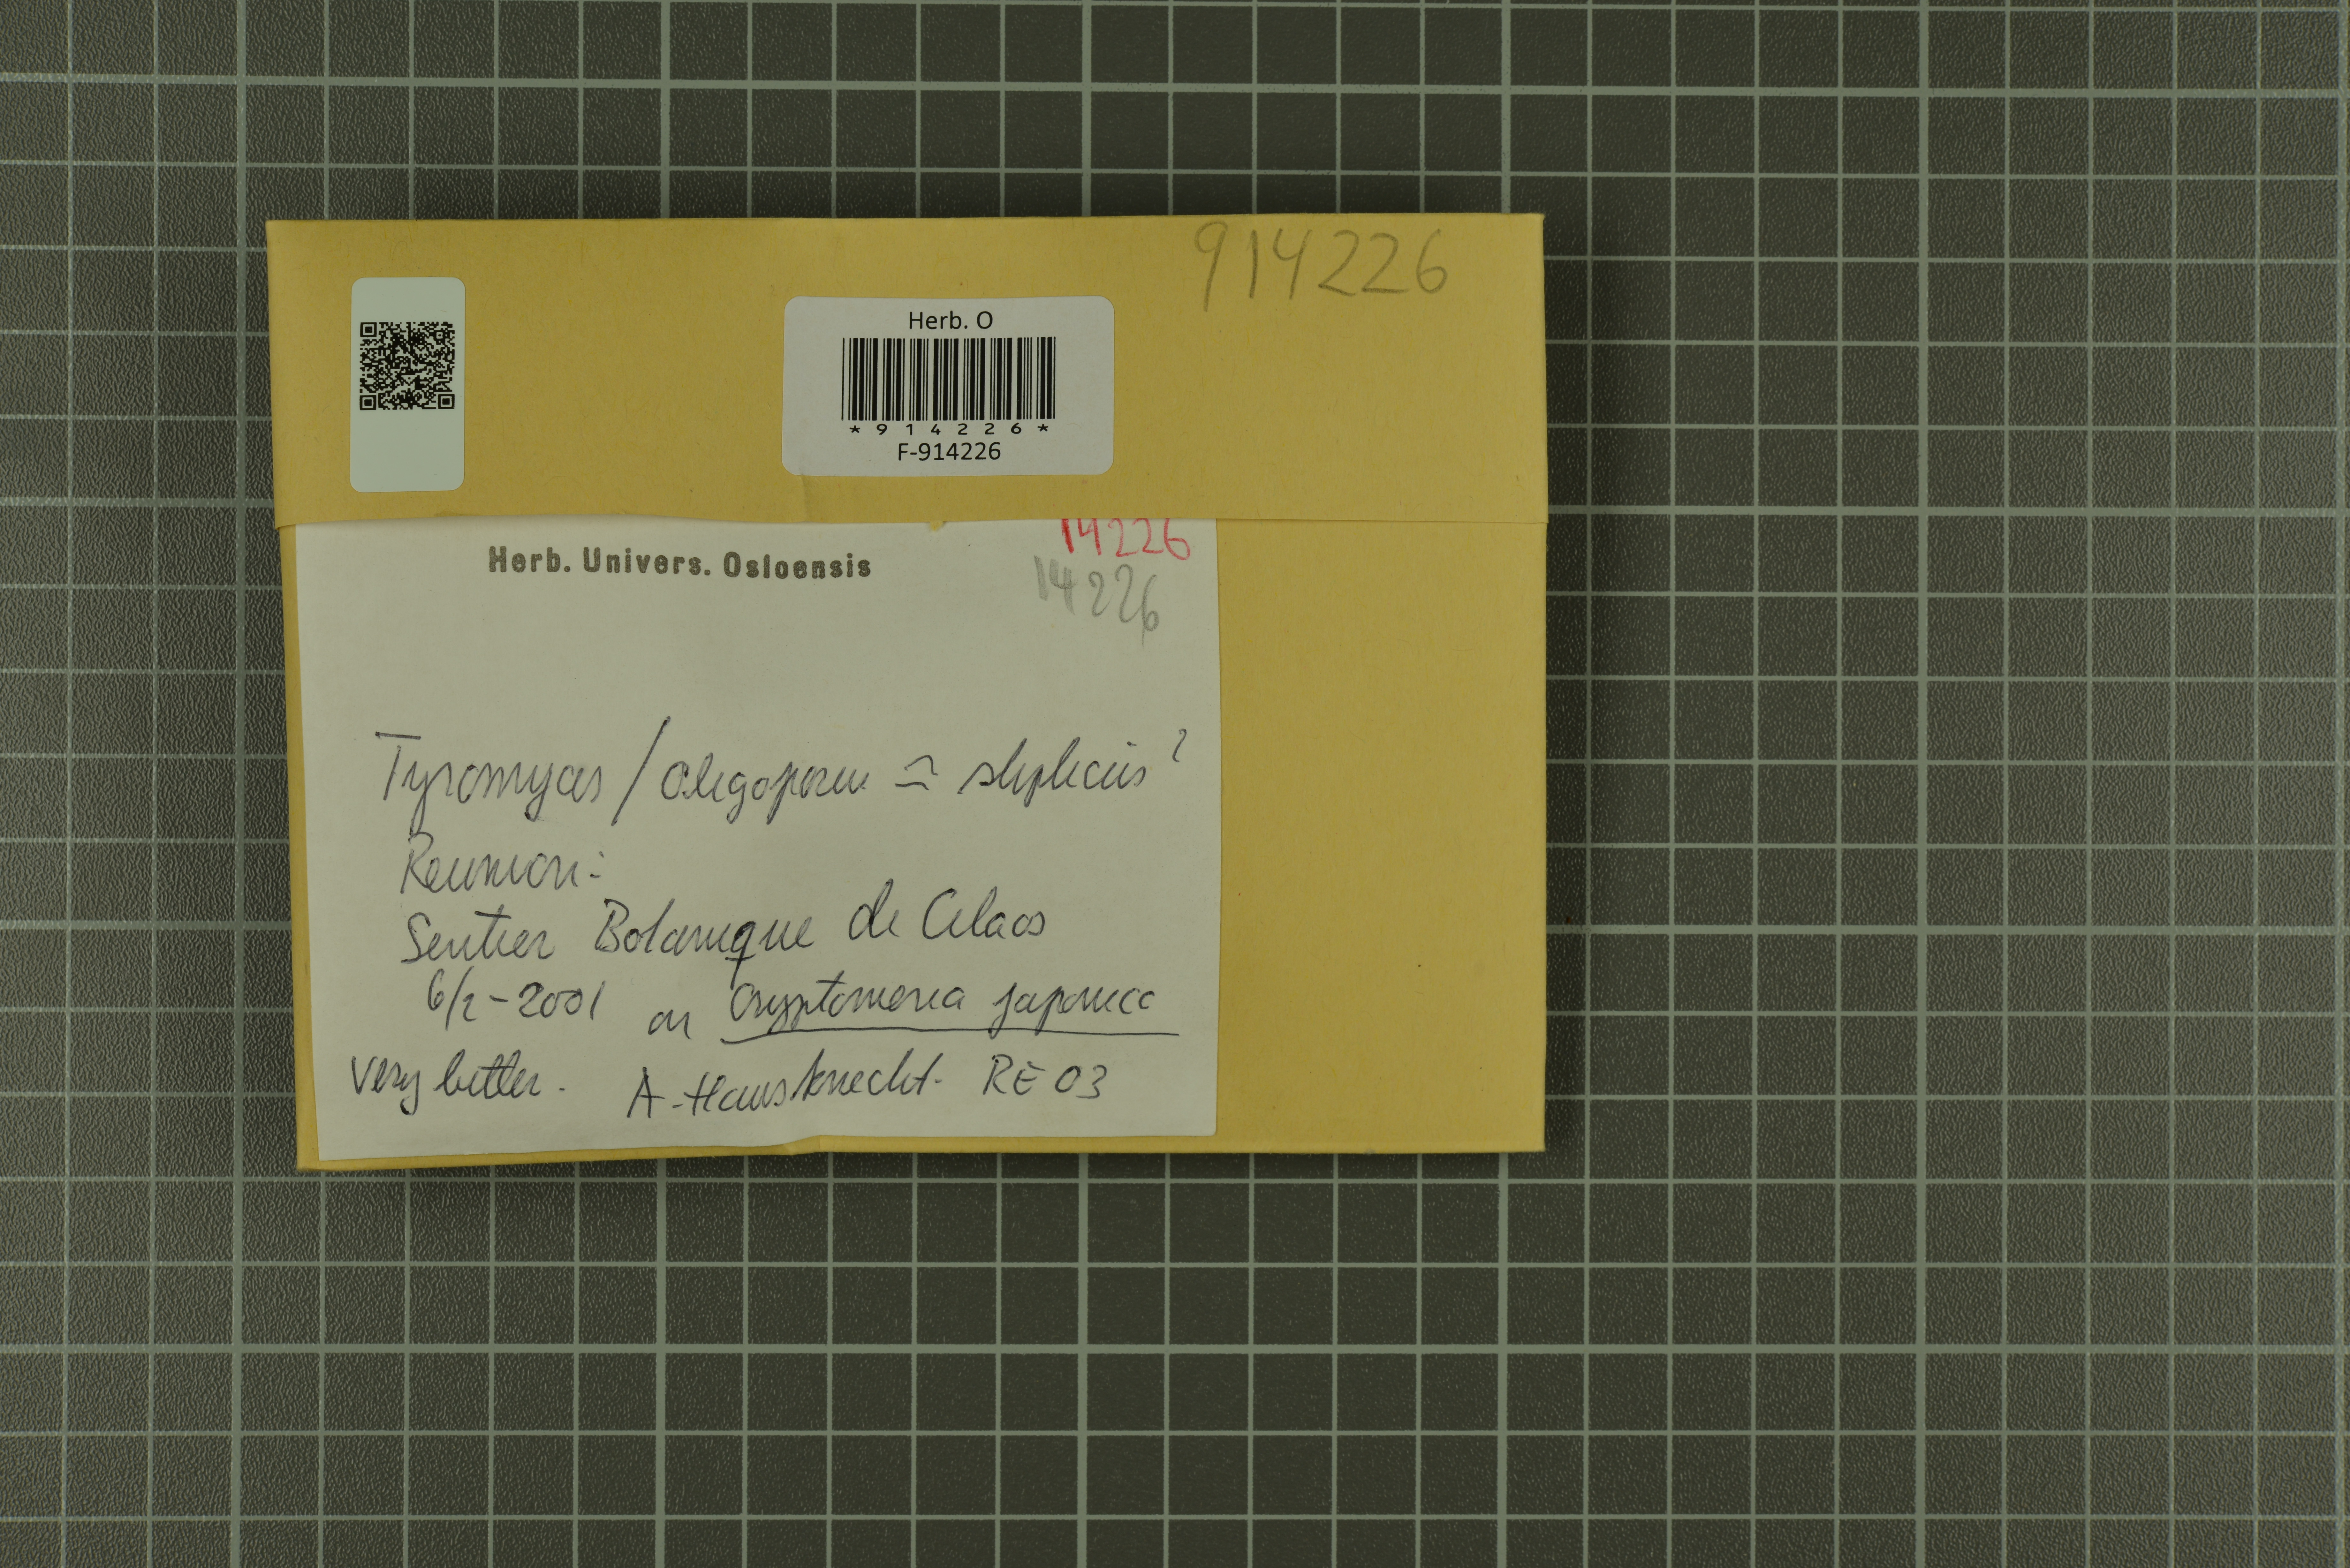 914226
Herb. O
*914226*
F-914226
14226
Herb. Univers. Osloensis
14226
Tyromyces / Oligoporus ≃ stipticus?
Reunion:
Sentier Botanique de Cilaos
6/2-2001 on Cryptomeria japonica
very bitter. A. Hausknecht. RE 03